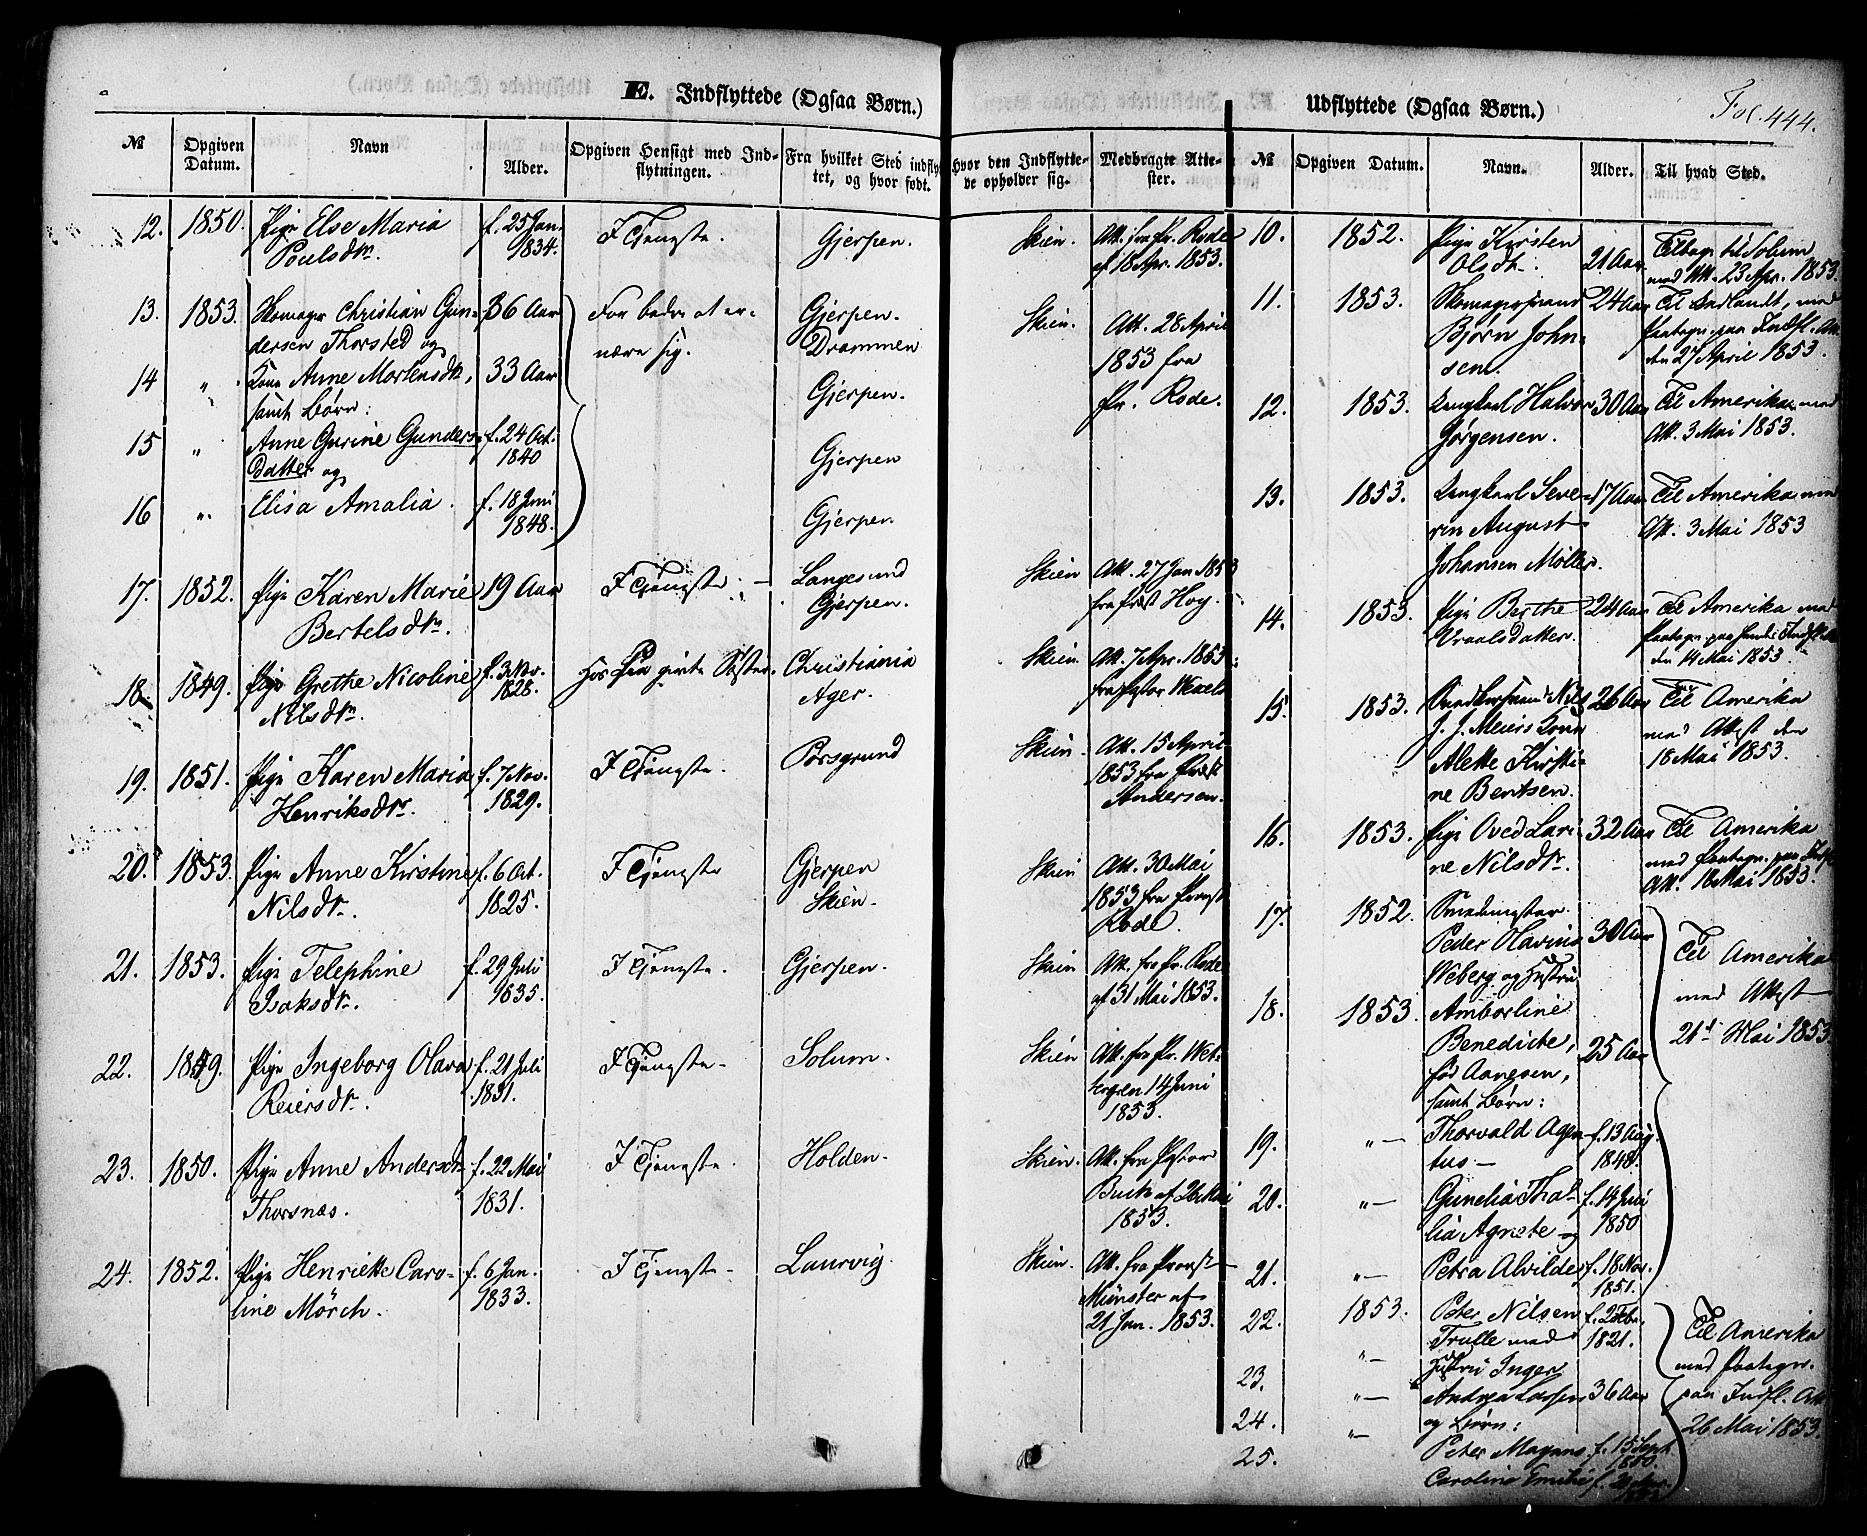 E. Indflyttede (Ogsaa Børn.)
Udflyttede (Ogsaa Børn.)
Fol. 444.
№ Opgiven Datum. Navn Alder. Opgiven Hensigt med Indflytningen. Fra hvilket Sted indflyttet, og hvor født. Hvor den Indflyttede opholder sig. Medbragte Attester.
№ Opgiven Datum. Navn. Alder. Til hvad Sted.
12. 1850. Pige Else Maria f. 25 Jan. I Tjeneste. Gjerpen. Skien. Att. fra Pr. Rode
Poulsdtr. 1834. af 18 Apr. 1853.
13. 1853. Skomager Christian Gun- 36 Aar For bedre at er- Gjerpen. Skien. Att. 28 April
dersen Thorsted og nære sig. Drammen 1853 fra
14 " Kone Anne Mortensdtr, 33 Aar Gjerpen. Pr. Rode.
samt Børn:
15 " Anne Gurine Gunders- f. 24 Oct. Gjerpen
Datter og 1840
16 " Elisa Amalia. f. 18 Juni Gjerpen.
1848.
17. 1852. Pige Karen Marie 19 Aar I Tjeneste. Langesund Skien Att. 27 Jan 1853
Bertelsdtr. Gjerpen. fra Præst Hoy.
18. 1849. Pige Grethe Nicoline f. 3 Nov. Hos sin givte Søster. Christiania Skien. Att. 7 Apr. 1853
Nilsdtr. 1828. Ager. fra Pastor Wexels
19. 1851. Pige Karen Maria f. 7 Nov. I Tjeneste. Porsgrund Skien. Att. 15 April
Henriksdtr. 1829. 1853 fra Præst
Andersen.
20. 1853. Pige Anne Kirstine f. 6 Oct. I Tjeneste Gjerpen Skien Att. 30 Mai
Nilsdtr. 1825. Skien. 1853 fra Provst
Rode.
21. 1853. Pige Telephine f. 29 Juli I Tjeneste. Gjerpen. Skien Att. fra Pr. Rode
Isaksdtr. 1835. af 31 Mai 1853.
22. 1849. Pige Ingeborg Olava f. 21 Juli I Tjeneste. Solum. Skien Att. fra Pr. Wet-
Reiersdtr. 1831. tergren 14 Juni
1853.
23. 1850. Pige Anne Andersdtr f. 22 Mai I Tjeneste. Holden. Skien. Att. fra Pastor
Thorsnæs. 1831. af 26 Mai
1853.
24. 1852. Pige Henriette Caro- f. 6 Jan. I Tjeneste. Laurvig. Skien. Att. fra Provst
line Mörch. 1833. Münster af
21 Jan. 1853.
10. 1852. Pige Kirsten 21 Aar Tilbage til Solum
Olsdtr. med Att. 23 Apr. 1853.
11. 1853. Skomagersvend 24 Aar Til Indlandt, med
Bjørn John- Paategn. paa Indfl. Att.
sen. den 27 April 1853.
12. 1853. Ungkarl Halvor 30 Aar Til Amerika, med
Jørgensen. Att. 3 Mai 1853.
13. 1853. Ungkarl Seve- 17 Aar Til Amerika med
rin August Att. 3 Mai 1853
Johansen Møller.
14. 1853. Pige Berthe 24 Aar Til Amerika med
Vraalsdatter. Paategn. paa Indfl.
den 14 Mai 1853.
15. 1853. Nils 26 Aar Til Amerika
J. J. Meiers Kone med Attest den
Alette Kirsti- 18 Mai 1853.
ne Bentsen.
16. 1853. Pige Oved Lari- 32 Aar Til Amerika
ne Nilsdtr. med Paategn. paa Indfl.
Att. 18 Mai 1853.
17. 1852. Smedmester
Peder Olavius 30 Aar Til Amerika
Weberg og Hustru med Attest
18. 1853. Amborline 21d Mai 1853.
Benedicte, 25 Aar
fød Aangsen,
samt Børn:
19. " Thorvald Agen- f. 13 Aug.
tus 1848.
20. " Gunelia Thal- f. 14 Juli
lia Agnete og 1850
21. " Petra Alvilde f. 18 Nov.
1851.
22. 1853. Peter Nilsen f. 2 Febr.
Trulle med 1821. Til Amerika
" Hustru Inger med Paategn.
23. " Andrea Larsen 36 Aar paa Indfl. Att.
24. og Børn: 26 Mai 1853.
" Peter Magnus f. 15 Sept.
25. 1850.
Carolina Emilie f.